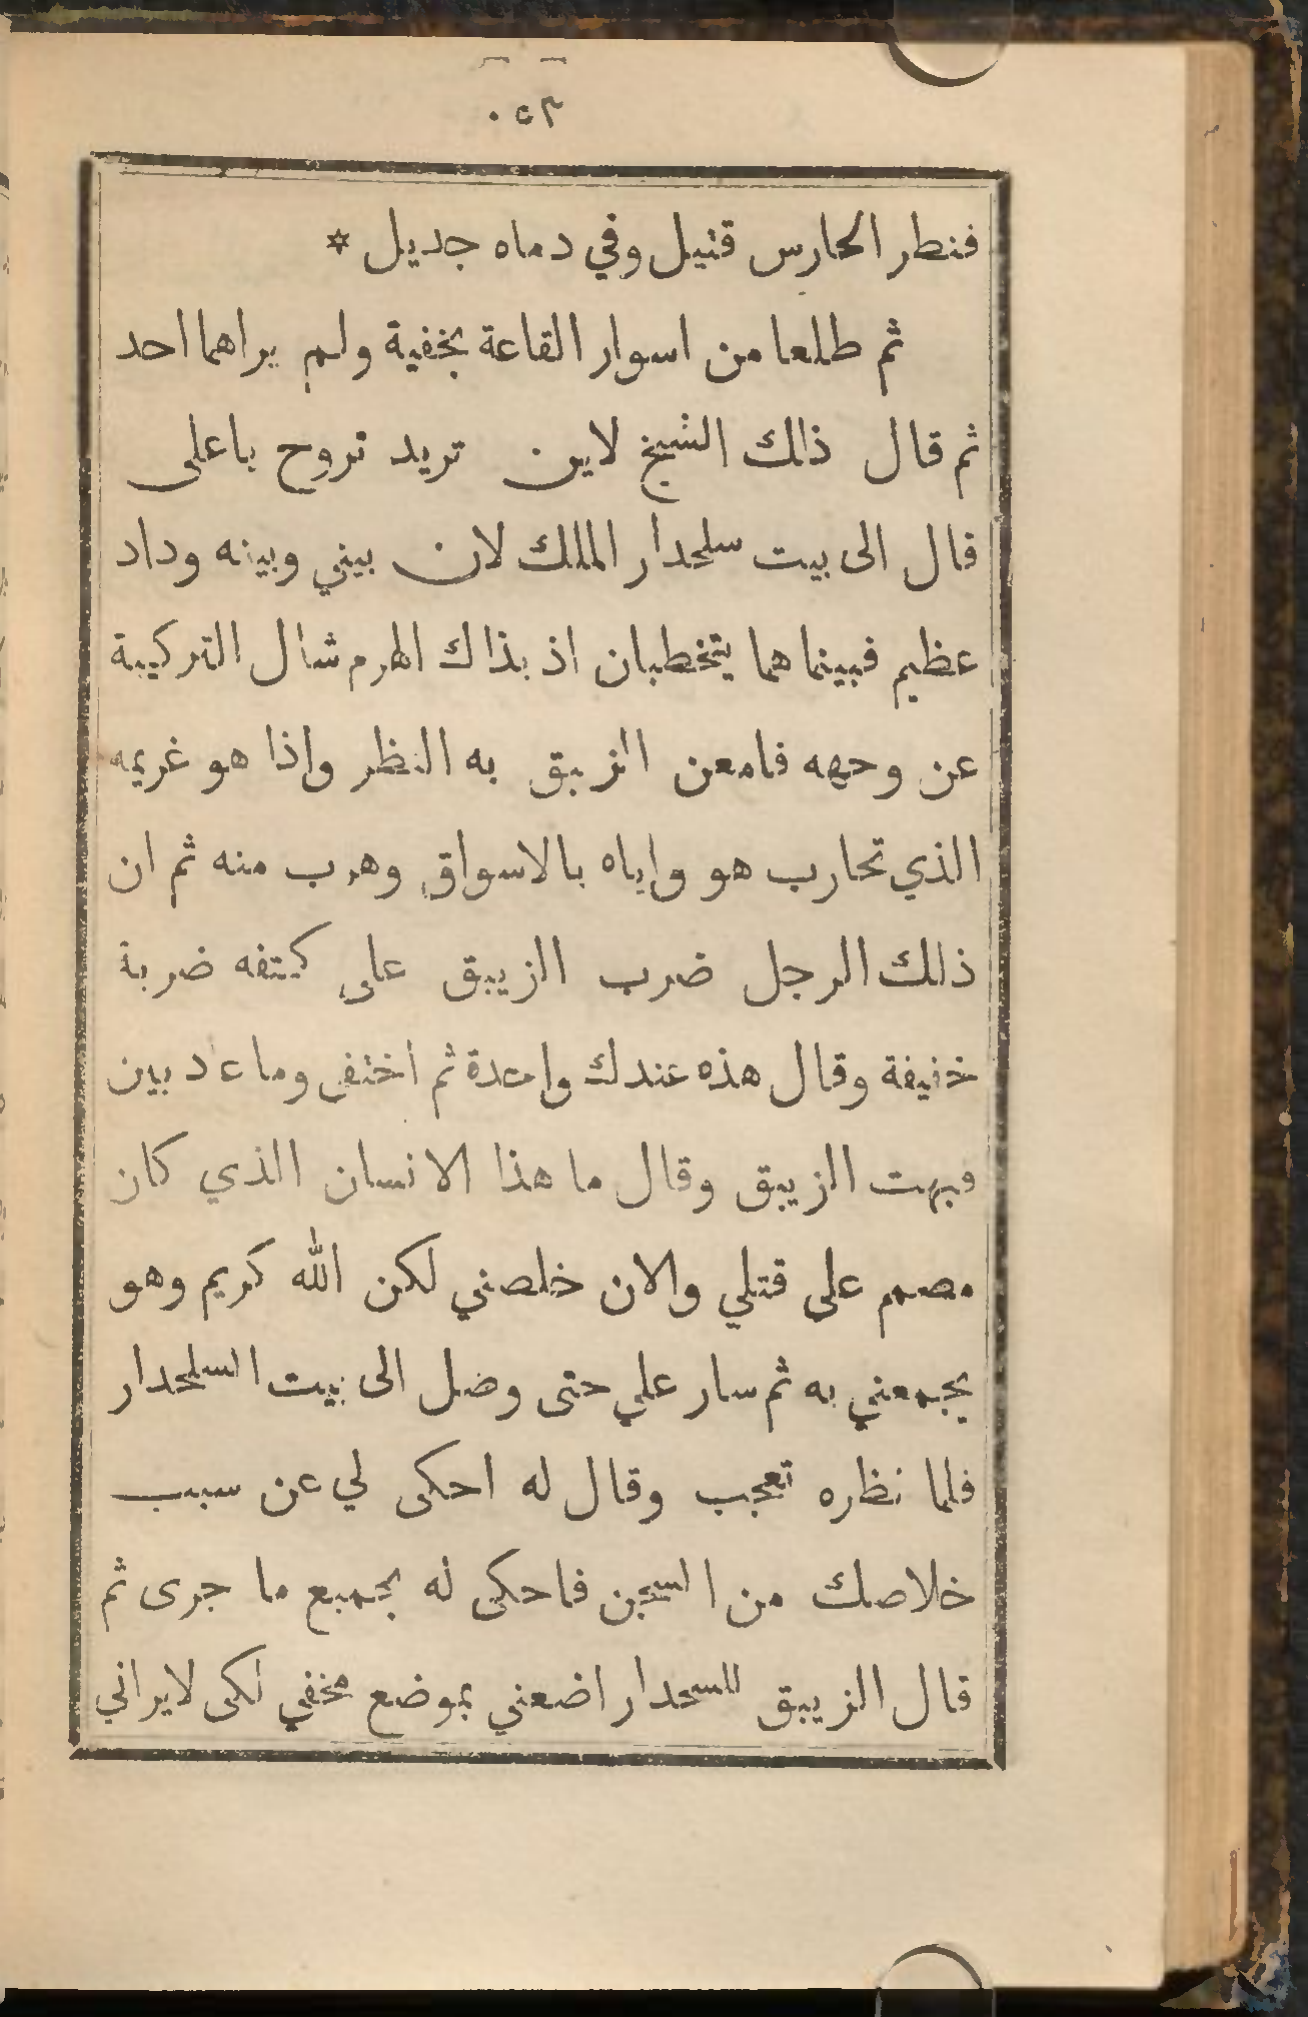 فنطر الحارس قتيل وفي دماه جديل *
ثم طلعا من اسوار القاعة بخفية ولم يراهما احد
ثم قال ذلك الشيخ لاين تريد تروح ياعلى
قال الى بيت سلحدار الملك لان بيني وبينه وداد
عظيم فبينما هما يتخطبان اذ بذاك الهرم شال التركيبة
عن وجهه فامعن الزيبق به النظر واذا هو غريمه
الذي تحارب هو واياه بالاسواق وهرب منه ثم ان
ذلك الرجل ضرب الزيبق على كتفه ضربة
خفيفة وقال هذه عندك واحدة ثم اختفى وما عاد يبين
فبهت الزيبق وقال ما هذا الانسان الذي كان
مصمم على قتلي والان خلصني لكن الله كريم وهو
يجمعني به ثم سار علي حتى وصل الى بيت السلحدار
فلما نظره تعجب وقال له احكى لي عن سبب
خلاصك من السجن فاحكى له بجميع ما جرى ثم
قال الزيبق للسحدار اضعني بموضع مخفي لكى لايراني